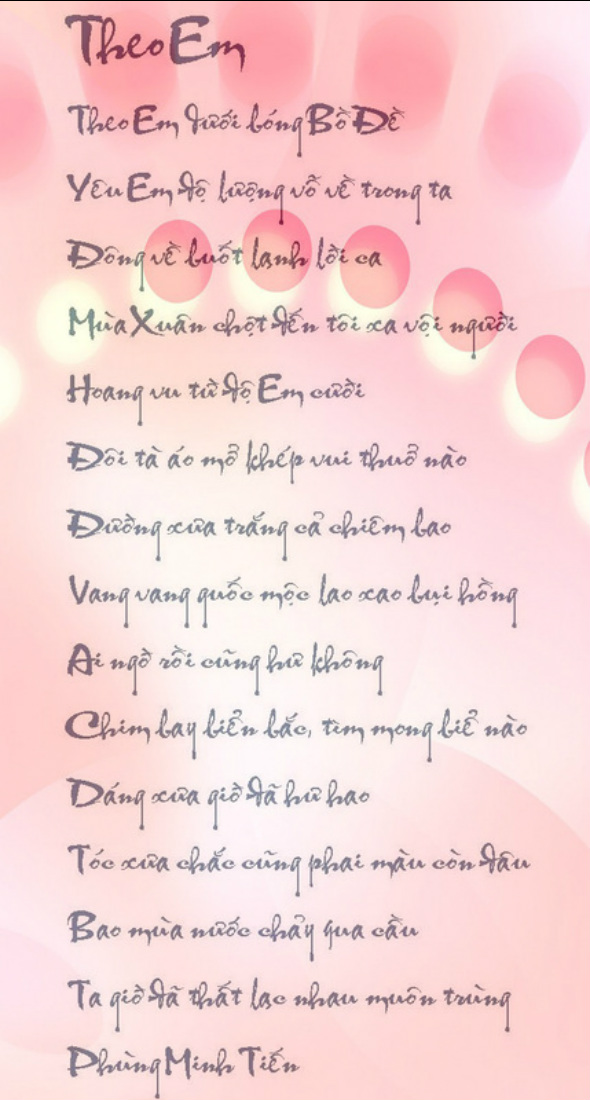 Theo Em
Theo Em dưới bóng Bồ Đề
Yêu Em độ lượng vỗ về trong ta
Đông về buốt lạnh lời ca
Mùa Xuân chợt đến tôi xa vội người
Hoang vu từ độ Em cười
Đôi tà áo mở khép vui thuở nào
Đường xưa trắng cả chiêm bao
Vang vang guốc mộc lao xao bụi hồng
Ai ngờ rồi cũng hư không
Chim bay biển bắc, tìm mong biể nào
Dáng xưa giờ đã hư hao
Tóc xưa chắc cũng phai màu còn đâu
Bao mùa nước chảy qua cầu
Ta giờ đã thất lạc nhau muôn trùng
Phùng Minh Tiến